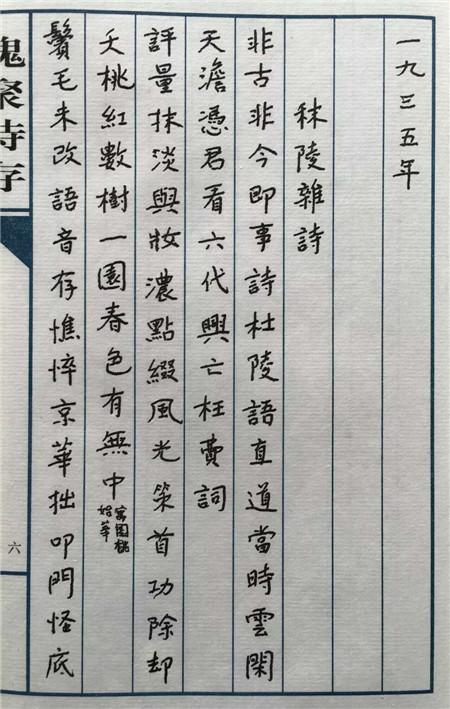 一九三五年
秣陵雜詩
非古非今即事詩杜陵語直道當時雲閑
天澹憑君看六代興亡枉費詞
評量抹淡與妝濃點綴風光策首功除却
夭桃紅數樹一園春色有無中寓園桃
始華
鬢毛未改語音存憔悴京華拙叩門怪底
槐聚詩存
六